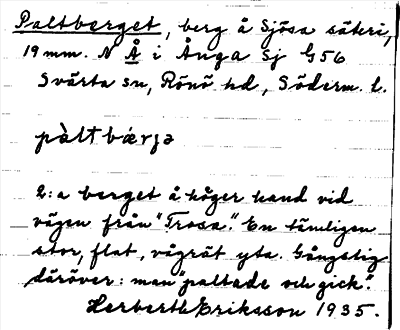 Paltberget, berg å Sjösa säteri,
19 mm. N Å i Ånga Sj G56
Svärta sn, Rönö hd, Söderm. l.
pàltbærja
2:a berget å höger hand vid
vägen från "Trosa". En tämligen
stor, flat, vågrät yta. Gångstig
däröver: man "paltade och gick".
Herbert Eriksson 1935.